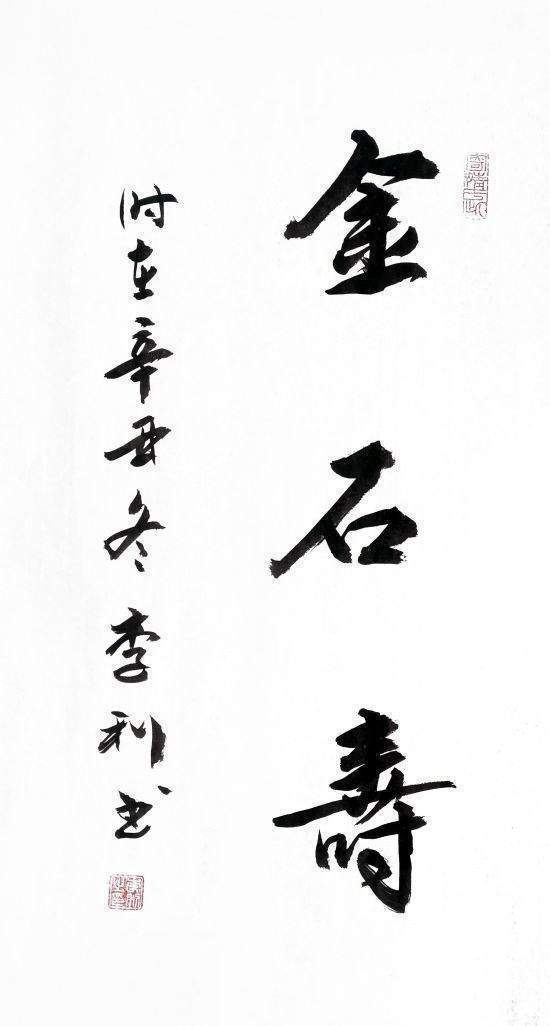 金石壽
时在辛丑冬李利书